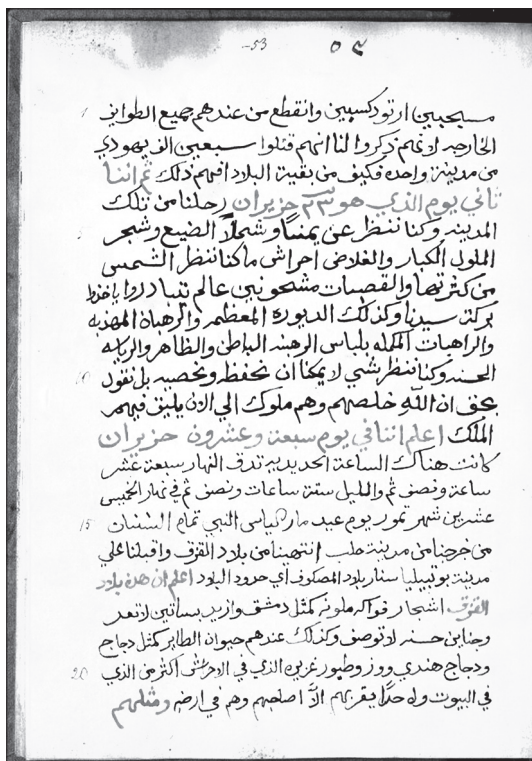 -53 ٥٣
1 مسيحيين ارتودكسيين وانقطع من عندهم جميع الطوايف
الخارجيه لانهم ذكروا لنا انهم قتلوا سبعين الف يهودي
من مدينة واحده فكيف من بقية البلاد افهم ذلك ثم اننا
ثاني يوم الذي هو حزيران رحلنا من تلك
5 المدينه وكنا ننظر عن يميننا وشمالاً الضيع وشجر
الملول الكبار والغلاضي احراش ما كنا ننظر الشمس
من كثرتها والقصبات مشحونين عالم تتبادروا ياخدوا
بركة سيدنا وكذلك الديوره المعظمه والرهبان المهذبه
والراهبات المكمله بلباس الرهبنه الباطن والظاهر والرياسه
10 الحسنه وكنا ننظر شي لا يمكنا ان نحفظه ونحصيه بل نقول
بحق ان الله خلصهم وهم ملوك الي الان يليق فيهم
الملك اعلم اننا في يوم سبعة وعشرون حزيران
كانت هناك الساعة الحديديه تدق النهار سبعة عشر
ساعة ونصف ثم والليل ستة ساعات ونصف ثم في نهار الخميس
15 عشرين شهر تموز يوم عيد مار الياس النبي تمام السنتان
من خرجنا من مدينة حلب انتهينا من بلاد القزق واقبلنا علي
مدينة بوتيبيليا ستار بلاد المصكوف اي حدود البلاد اعلم ان هده بلاد
القزق اشجار فواكه ملونه كمثل دمشق وازيد بساتين لا تعد
وجناين حسنه لا توصف وكذلك عندهم حيوان الطاير كمثل دجاج
20 ودجاج هندي ووز وطيور غزيره الذي في الاحراش اكثر من الذي
في البيوت ولا احداً يقربهم الاّ اصلحهم وهم في ارضه ومثلهم